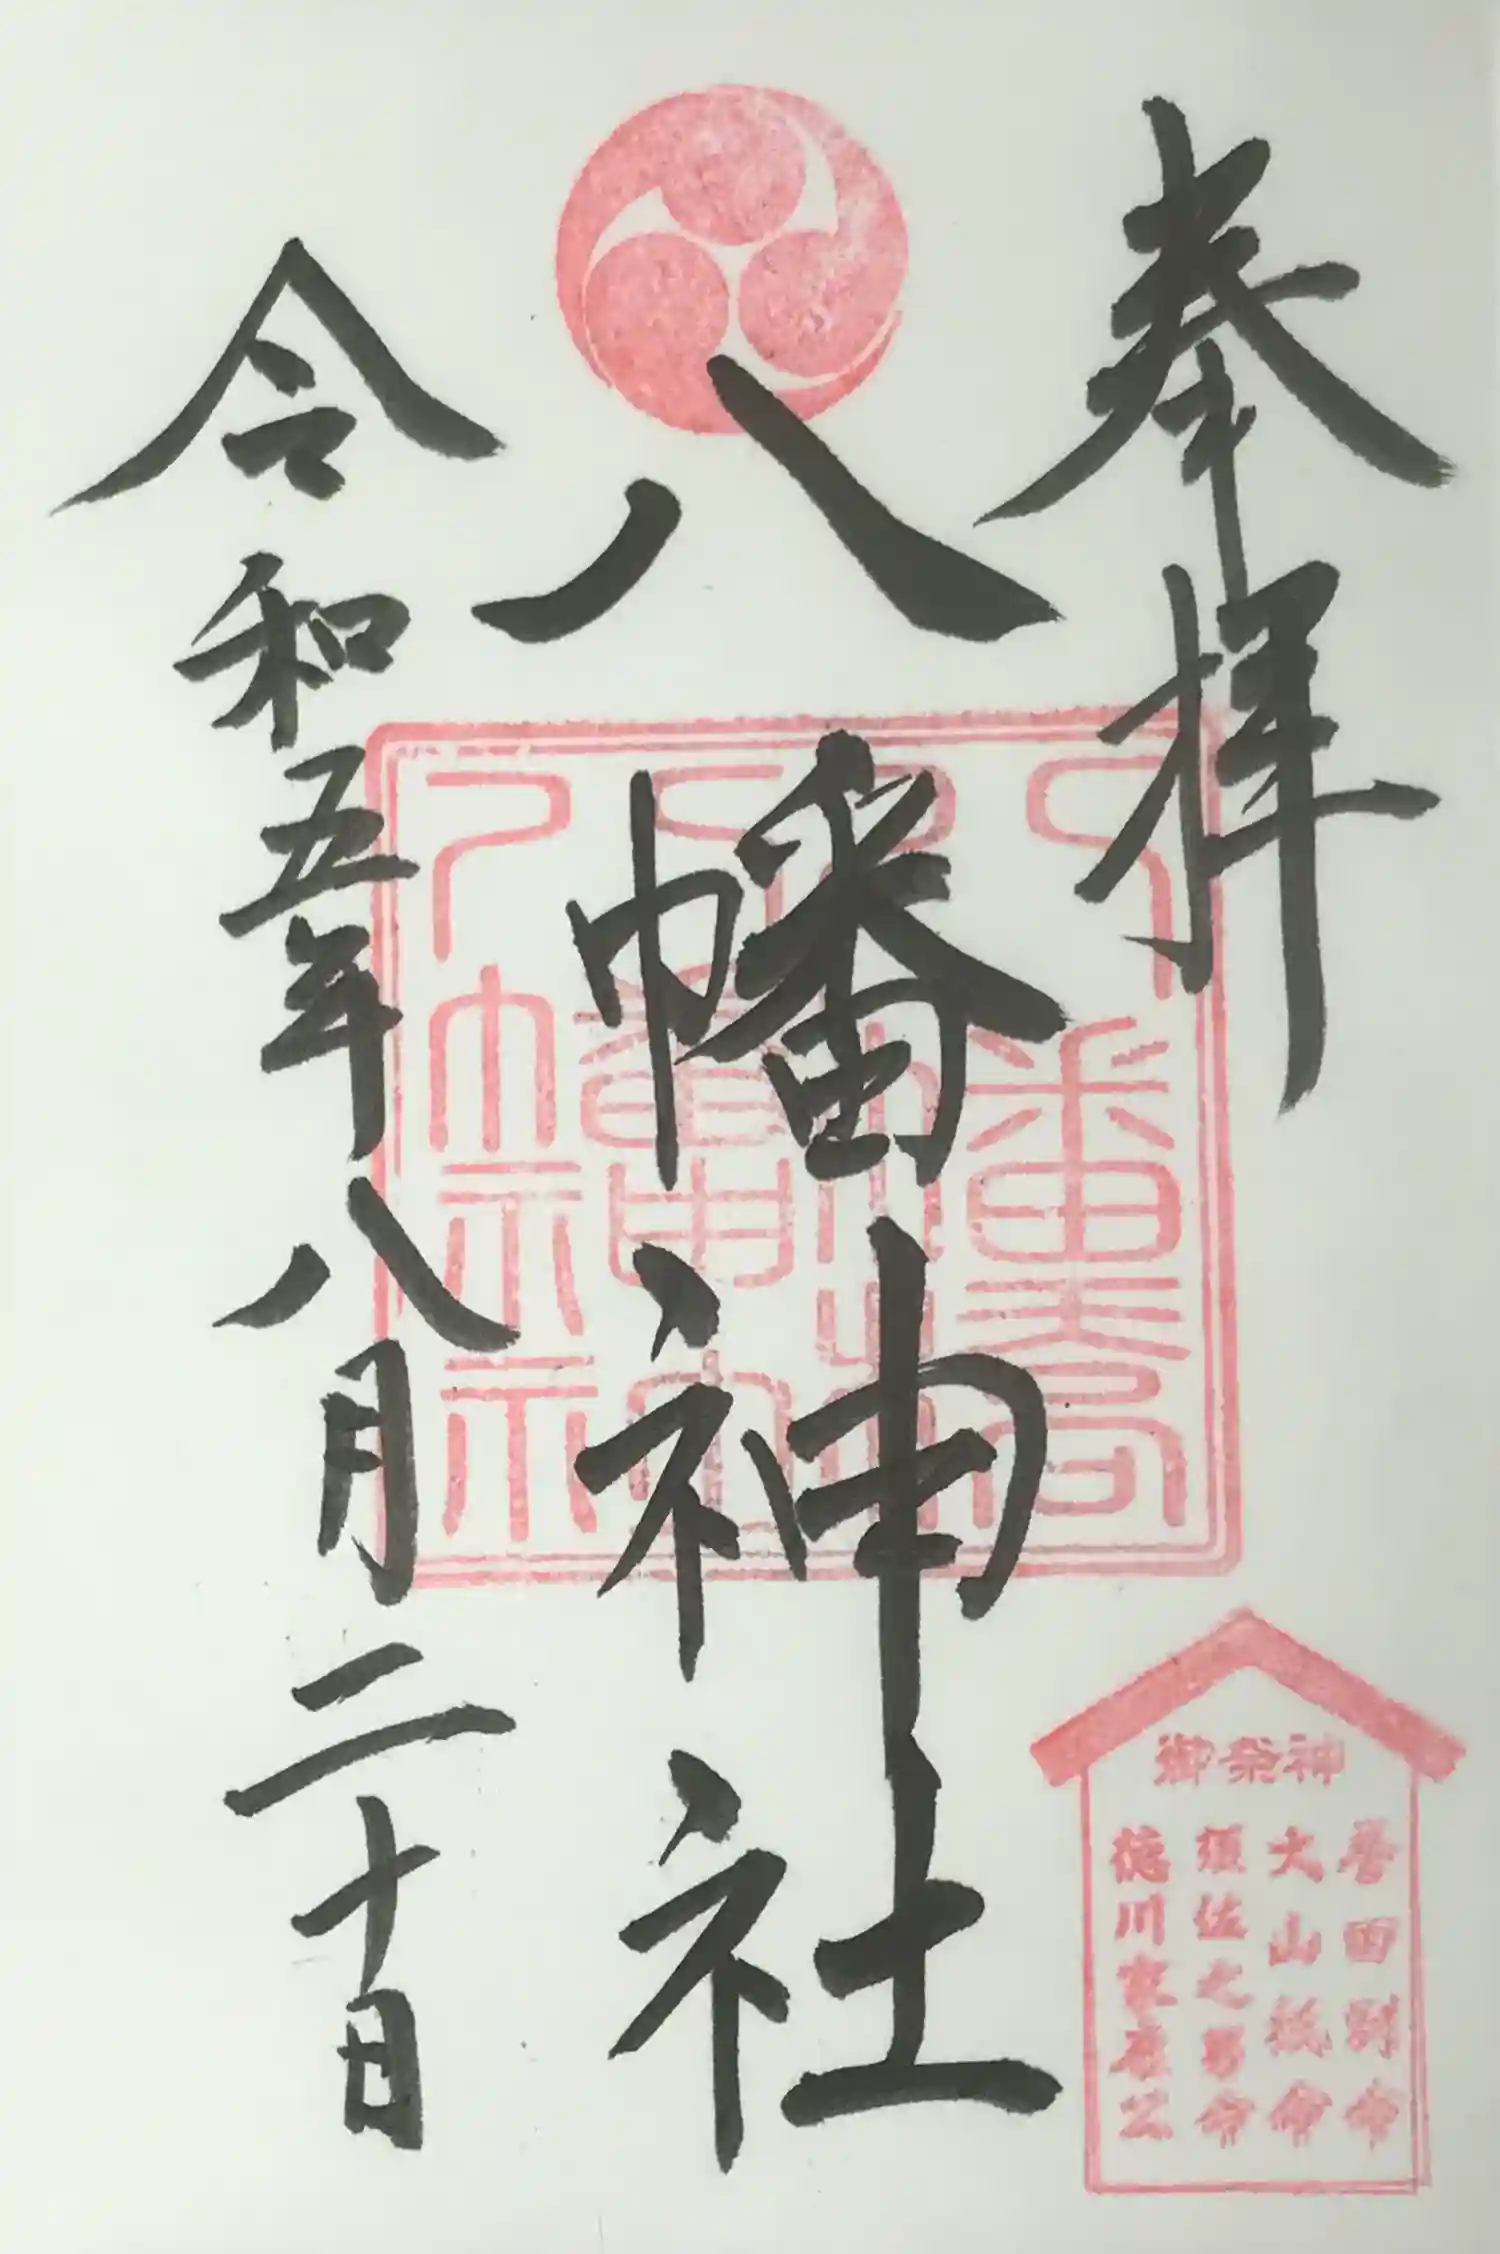 奉拝
八幡神社
令和五年八月二十日
御祭神
誉田別命
大山祇命
須佐之男命
徳川家康公